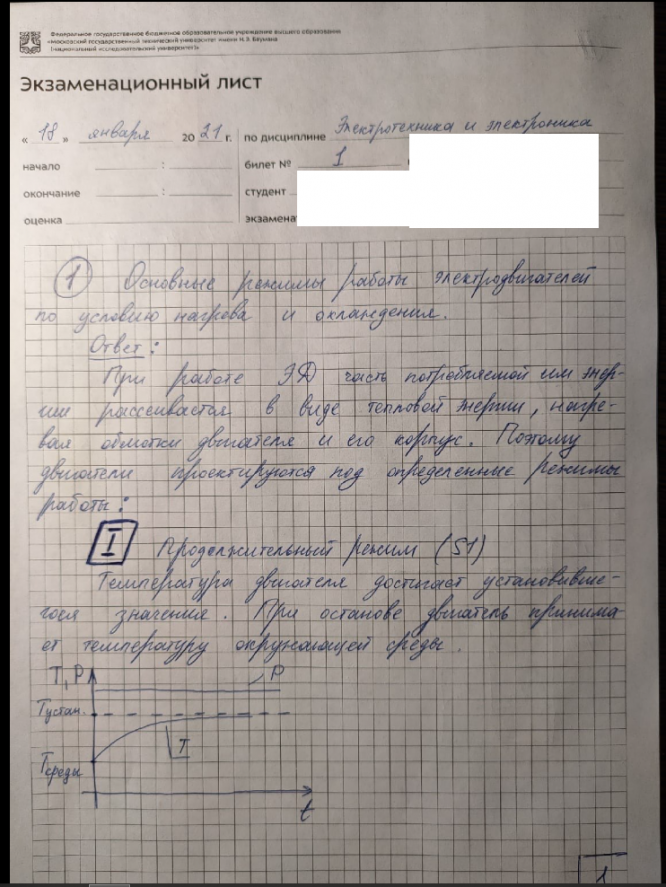 Федеральное государственное бюджетное образовательное учреждение высшего образования
«Московский государственный технический университет имени Н.Э. Баумана
(национальный исследовательский университет)»
Экзаменационный лист
« 18 » января 20 21 г. по дисциплине Электротехника и электроника
начало : билет № 1
окончание : студент
оценка экзамена
1 Основные режимы работы электродвигателей
по условию нагрева и охлаждения.
Ответ:
При работе ЭД часть потребляемой им энер-
гии рассеивается в виде тепловой энергии, нагре-
вая обмотки двигателя и его корпус. Поэтому
двигатели проектируются под определенные режимы
работы:
I Продолжительный режим (S1)
Температура двигателя достигает установивше-
гося значение. При останове двигатель принима-
ет температуру окружающей среды.
T, P
P
Tустан.
T
Tсреды
t
1